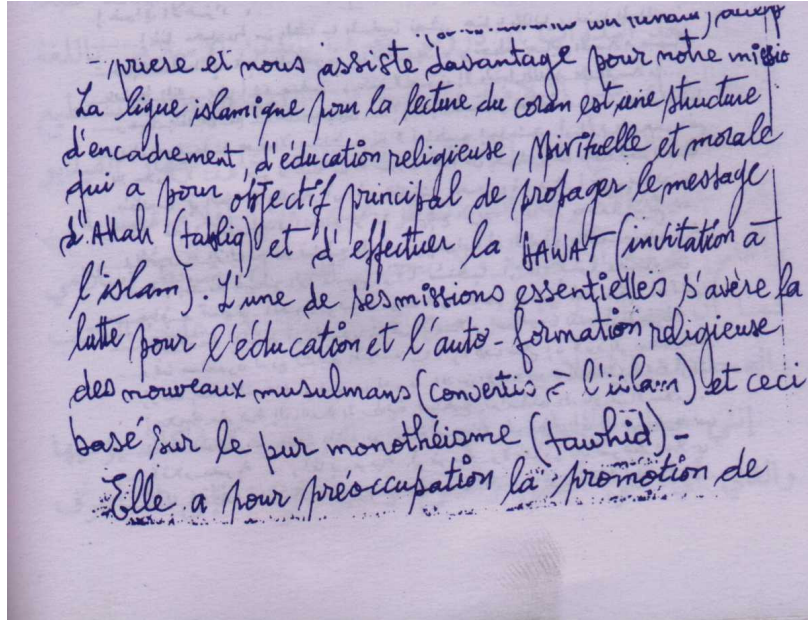 prière et nous assiste davantage pour notre missio
La ligue islamique pour la lecture du coran est une structure
d'encadrement, d'éducation religieuse, spirituelle et morale
qui a pour objectif principal de propager le message
d'Allah (tabliq) et d'effectuer la DAWAT (invitation à
l'islam). L'une de ses missions essentielles s'avère la
lutte pour l'éducation et l'auto-formation religieuse
des nouveaux musulmans (convertis à l'islam) et ceci
basé sur le pur monothéisme (tawhid) -
Elle a pour préoccupation la promotion de